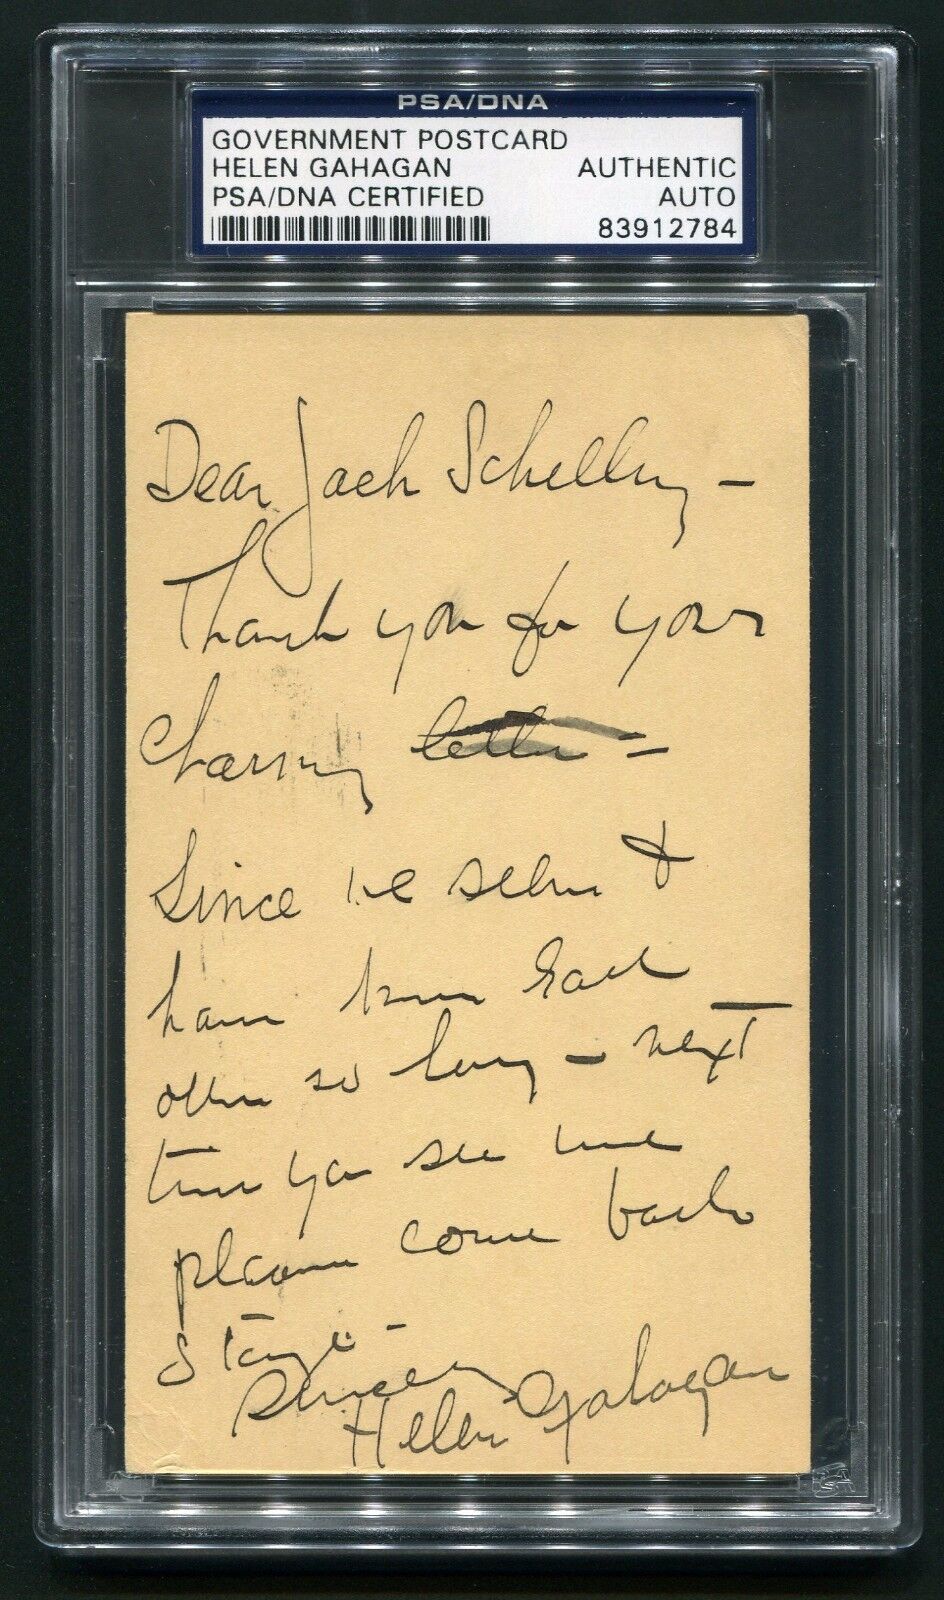 PSA/DNA
GOVERNMENT POSTCARD
HELEN GAHAGAN AUTHENTIC
PSA/DNA CERTIFIED AUTO
83912784
Dear Jack Schelling –
Thank you for your
charming letter –
Since we &
have known each
other so long – next
time you see me
please come back
stage –
Sincerely
Helen Gahagan